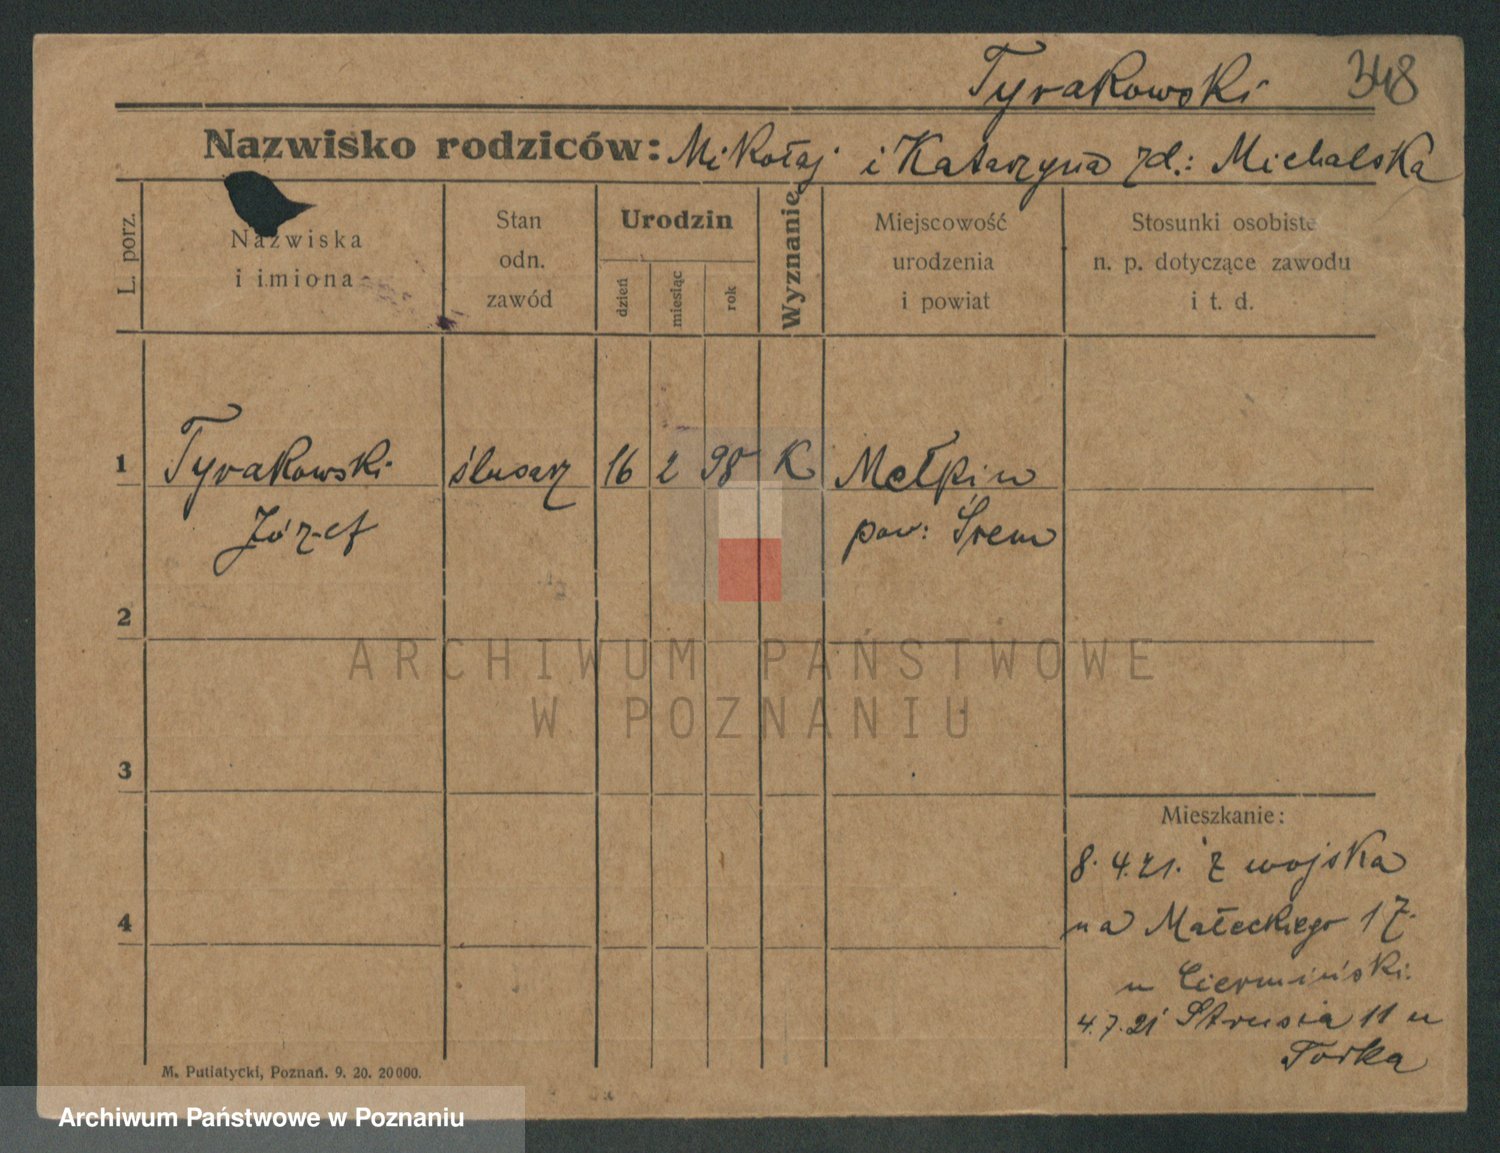 Tyrakowski 348
Nazwisko rodziców: Mikołaj i Katarzyna zd.: Michalska
L. porz.
Nazwiska
i imiona
Stan
odn.
zawód
Urodzin
dzień
miesiąc
rok
Wyznanie
Miejscowość
urodzenia
i powiat
Stosunki osobiste
n. p. dotyczące zawodu
i t. d.
1 Tyrakowski ślusarz 16 2 98 K Mełpin
Józef pow: Śrem
2
3
4
Mieszkanie:
8.4.21. z wojska
na Małeckiego 17.
u Ciermiński.
4.7.21 Strusia 11 u
Torka
M. Putiatycki, Poznań. 9. 20. 20000.
ARCHIWUM PAŃSTWOWE
W POZNANIU
Archiwum Państwowe w Poznaniu